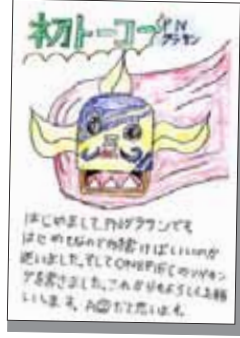 初トーコー PN
グラサン
はじめまして、PNグラサンです
はじめてなので何を書けばいいのか
迷いました。そしてONE PIECEのソゲキン
グを書きました。これからもよろしくお願
いします。